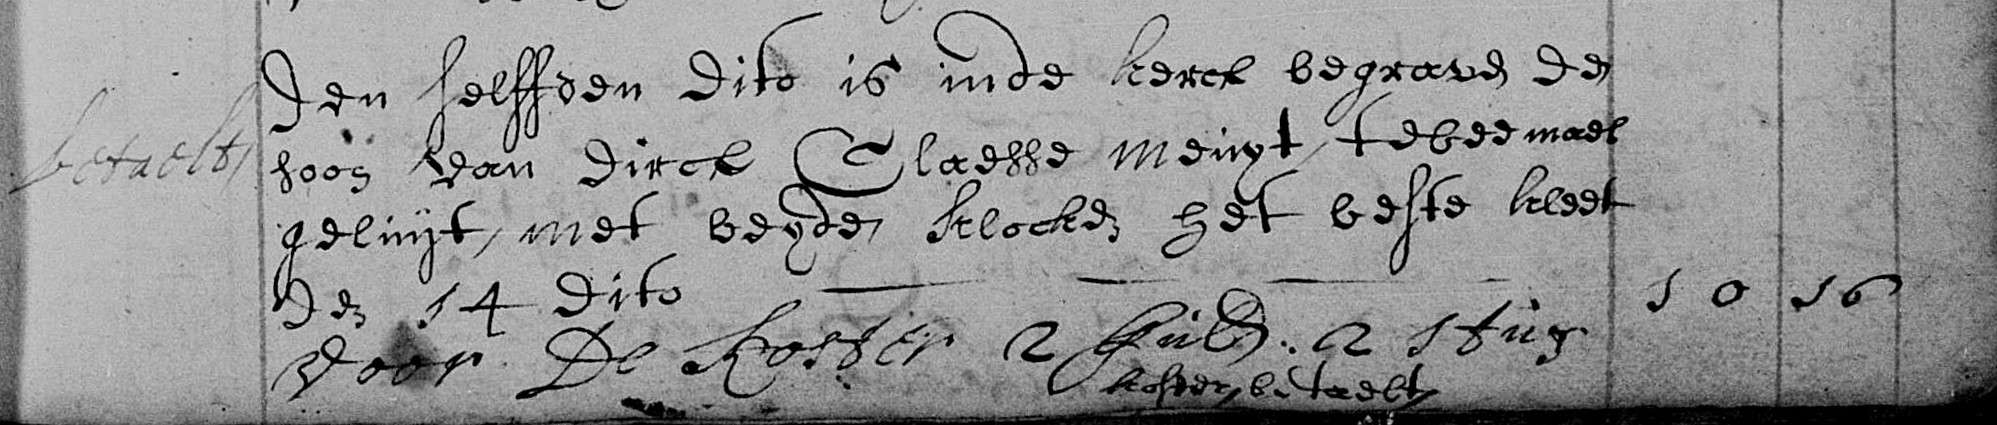 Den helffden dito is inde kerck begraven de
soon van Dirck Claesse Meuyt, tweemael
geluijt, met beyde klocken het beste kleet
betaelt
den 14 dito — — — 10 16
Voor De Koster 2 Guld. 2 stuy
koster betaelt